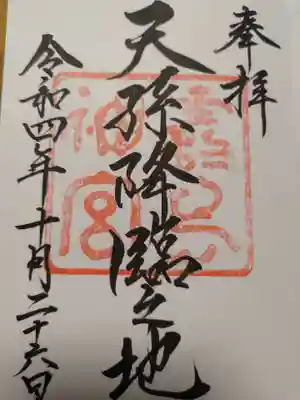 奉拝
天孫降臨之地
霧島神宮
令和四年十月二十六日